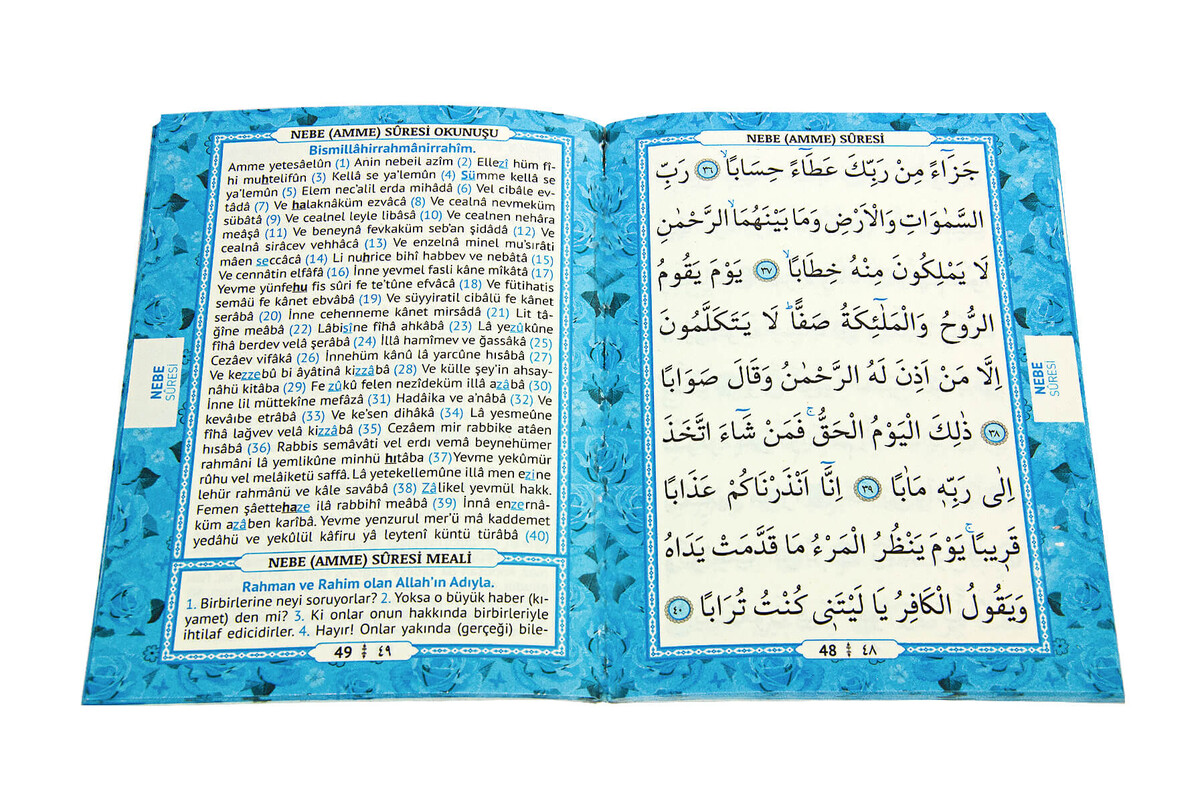 NEBE (AMME) SÛRESİ
جَزَٓاءً مِنْ رَبِّكَ عَطَٓاءً حِسَابًاۙ ﴿٣٦﴾ رَبِّ
السَّمٰوَاتِ وَالْاَرْضِ وَمَا بَيْنَهُمَاۙ الرَّحْمٰنِ
لَا يَمْلِكُونَ مِنْهُ خِطَابًاۙ ﴿٣٧﴾ يَوْمَ يَقُومُ
الرُّوحُ وَالْمَلٰٓئِكَةُ صَفًّاۜ لَا يَتَكَلَّمُونَ
اِلَّا مَنْ اَذِنَ لَهُ الرَّحْمٰنُ وَقَالَ صَوَابًا
﴿٣٨﴾ ذٰلِكَ الْيَوْمُ الْحَقُّۚ فَمَنْ شَٓاءَ اتَّخَذَ
اِلٰى رَبِّه۪ مَاٰبًا ﴿٣٩﴾ اِنَّٓا اَنْذَرْنَاكُمْ عَذَابًا
قَر۪يبًاۚ يَوْمَ يَنْظُرُ الْمَرْءُ مَا قَدَّمَتْ يَدَاهُ
وَيَقُولُ الْكَافِرُ يَا لَيْتَن۪ي كُنْتُ تُرَابًا ﴿٤٠﴾
NEBE
SÛRESİ
48 ٤٨
NEBE (AMME) SÛRESİ OKUNUŞU
Bismillâhirrahmânirrahîm.
Amme yetesâelûn (1) Anin nebeil azîm (2) Ellezî hüm fî-
hi muhtelifûn (3) Kellâ se ya'lemûn (4) Sümme kellâ se
ya'lemûn (5) Elem nec'alil erda mihâdâ (6) Vel cibâle ev-
tâdâ (7) Ve halaknâküm ezvâcâ (8) Ve cealnâ nevmeküm
sübâtâ (9) Ve cealnel leyle libâsâ (10) Ve cealnen nehâra
meâşâ (11) Ve beneynâ fevkaküm seb'an şidâdâ (12) Ve
cealnâ sirâcev vehhâcâ (13) Ve enzelnâ minel mu'sırâti
mâen seccâcâ (14) Li nuhrice bihî habbev ve nebâtâ (15)
Ve cennâtin elfâfâ (16) İnne yevmel fasli kâne mîkâtâ (17)
Yevme yünfehu fis sûri fe te'tûne efvâcâ (18) Ve fütihatis
semâü fe kânet ebvâbâ (19) Ve süyyiratil cibâlü fe kânet
serâbâ (20) İnne cehenneme kânet mirsâdâ (21) Lit tâ-
ğîne meâbâ (22) Lâbisîne fîhâ ahkâbâ (23) Lâ yezûkûne
fîhâ berdev velâ şerâbâ (24) İllâ hamîmev ve ğassâkâ (25)
Cezâev vifâkâ (26) İnnehüm kânû lâ yarcûne hısâbâ (27)
Ve kezzebû bi âyâtinâ kizzâbâ (28) Ve külle şey'in ahsay-
nâhü kitâba (29) Fe zûkû felen nezîdeküm illâ azâbâ (30)
İnne lil müttekîne mefâzâ (31) Hadâika ve a'nâbâ (32) Ve
kevâıbe etrâbâ (33) Ve ke'sen dihâkâ (34) Lâ yesmeûne
fîhâ lağvev velâ kizzâbâ (35) Cezâem mir rabbike atâen
hısâbâ (36) Rabbis semâvâti vel erdı vemâ beynehümer
rahmâni lâ yemlikûne minhü hıtâba (37)Yevme yekûmür
rûhu vel melâiketü saffâ. Lâ yetekellemûne illâ men ezine
lehür rahmânü ve kâle savâbâ (38) Zâlikel yevmül hakk.
Femen şâettehaze ilâ rabbihî meâbâ (39) İnnâ enzernâ-
küm azâben karîbâ. Yevme yenzurul mer'ü mâ kaddemet
yedâhü ve yekûlül kâfiru yâ leytenî küntü türâbâ (40)
NEBE (AMME) SÛRESİ MEALİ
Rahman ve Rahim olan Allah'ın Adıyla.
1. Birbirlerine neyi soruyorlar? 2. Yoksa o büyük haber (kı-
yamet) den mi? 3. Ki onlar onun hakkında birbirleriyle
ihtilaf edicidirler. 4. Hayır! Onlar yakında (gerçeği) bile-
NEBE
SÛRESİ
49 ٤٩